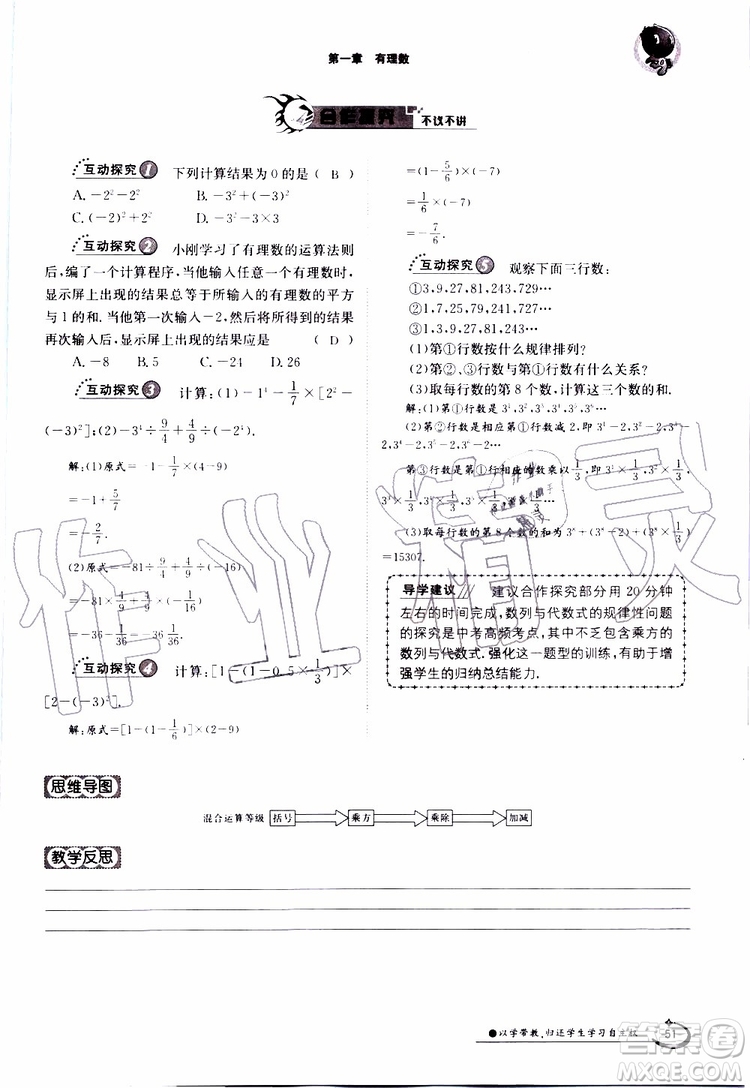 第一章　有理数
合作探究 不议不讲
互动探究1　下列计算结果为0的是（　B　）
A. －2²－2²　B. －3²＋(－3)²
C. (－2)²＋2²　D. －3²－3×3
互动探究2　小刚学习了有理数的运算法则
后,编了一个计算程序,当他输入任意一个有理数时,
显示屏上出现的结果总等于所输入的有理数的平方
与1的和.当他第一次输入－2,然后将所得到的结果
再次输入后,显示屏上出现的结果应是（　D　）
A. －8　B. 5　C. －24　D. 26
互动探究3　计算:(1)－1⁴－1/7×[2²－
(－3)²];(2)－3⁴÷9/4＋4/9÷(－2⁴).
解:(1)原式＝－1－1/7×(4－9)
＝－1＋5/7
＝－2/7.
(2)原式＝－81÷9/4＋4/9÷(－16)
＝－81×4/9＋4/9×(－1/16)
＝－36－1/36＝－36 1/36.
互动探究4　计算:[1－(1－0.5×1/3)]×
[2－(－3)²].
解:原式＝[1－(1－1/6)]×(2－9)
＝(1－5/6)×(－7)
＝1/6×(－7)
＝－7/6.
互动探究5　观察下面三行数:
①3,9,27,81,243,729…
②1,7,25,79,241,727…
③1,3,9,27,81,243…
(1)第①行数按什么规律排列?
(2)第②、③行数与第①行数有什么关系?
(3)取每行数的第8个数,计算这三个数的和.
解:(1)第①行数是3¹,3²,3³,3⁴,3⁵,3⁶…
(2)第②行数是相应第①行数减2,即3¹－2,3²－2,3³－
2,3⁴－2,3⁵－2,3⁶－2…
第③行数是相应第①行相应的数乘以1/3,即3¹×1/3,3²×1/3,
3³×1/3,3⁴×1/3,3⁵×1/3,3⁶×1/3…
(3)取每行数的第8个数的和为3⁸＋(3⁸－2)＋(3⁸×1/3)
＝15307.
导学建议　建议合作探究部分用20分钟
左右的时间完成,数列与代数式的规律性问题
的探究是中考高频考点,其中不乏包含乘方的
数列与代数式.强化这一题型的训练,有助于增
强学生的归纳总结能力.
思维导图
混合运算等级 括号 乘方 乘除 加减
教学反思
●以学带教,归还学生学习自主权
51
作业精灵
答案圈
MXQE.COM